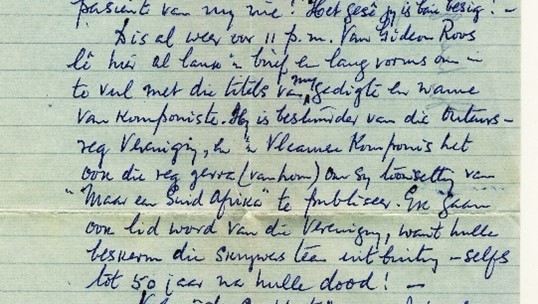 pasiënt van my nie! Het gesê hy is baie besig! -
Dis al weer oor 11 p.m. Van Gideon Roos
lê hier al lank 'n brief en lang vorms om in
te vul met die titels van my gedigte en name
van komponiste. Hy is bestuurder van die Outeurs-
reg Vereniging, en 'n Vlaamse Komponis het
ook die reg gevra (van hom) om sy toonsetting van
"Maar een Suid Afrika" te publiseer. Ek gaan
ook lid word van die Vereniging, want hulle
beskerm die skrywers teen uitbuiting - selfs
tot 50 jaar na hulle dood! -